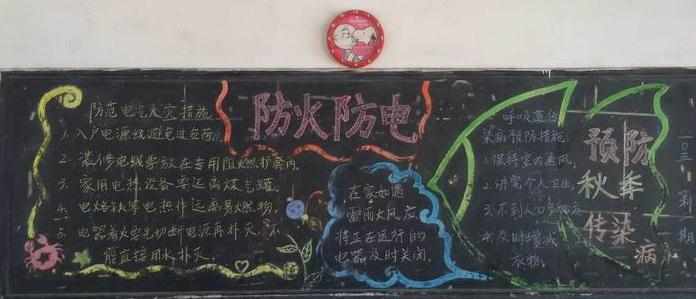 防范电气火灾措施
1、入户电源线避免过负荷
2、装修电线要放在专用阻燃护套内,
3、家用电热设备要远离煤气罐,
4、电烙铁等电热件远离易燃物,
5、电器着火要先切断电源再扑灭,不
能直接用水扑灭。
防火防电
在家如遇
雷雨大风应
将正在运行的
电器及时关闭。
呼吸道传
染病预防措施
1、保持室内通风,
2、讲究个人卫生,
3、不到人口
4、及时增减
衣物。
预防
秋季
传染
病
一〇三
期